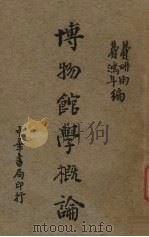 費畊雨
費鴻年
編
博物館學概論
中華書局印行